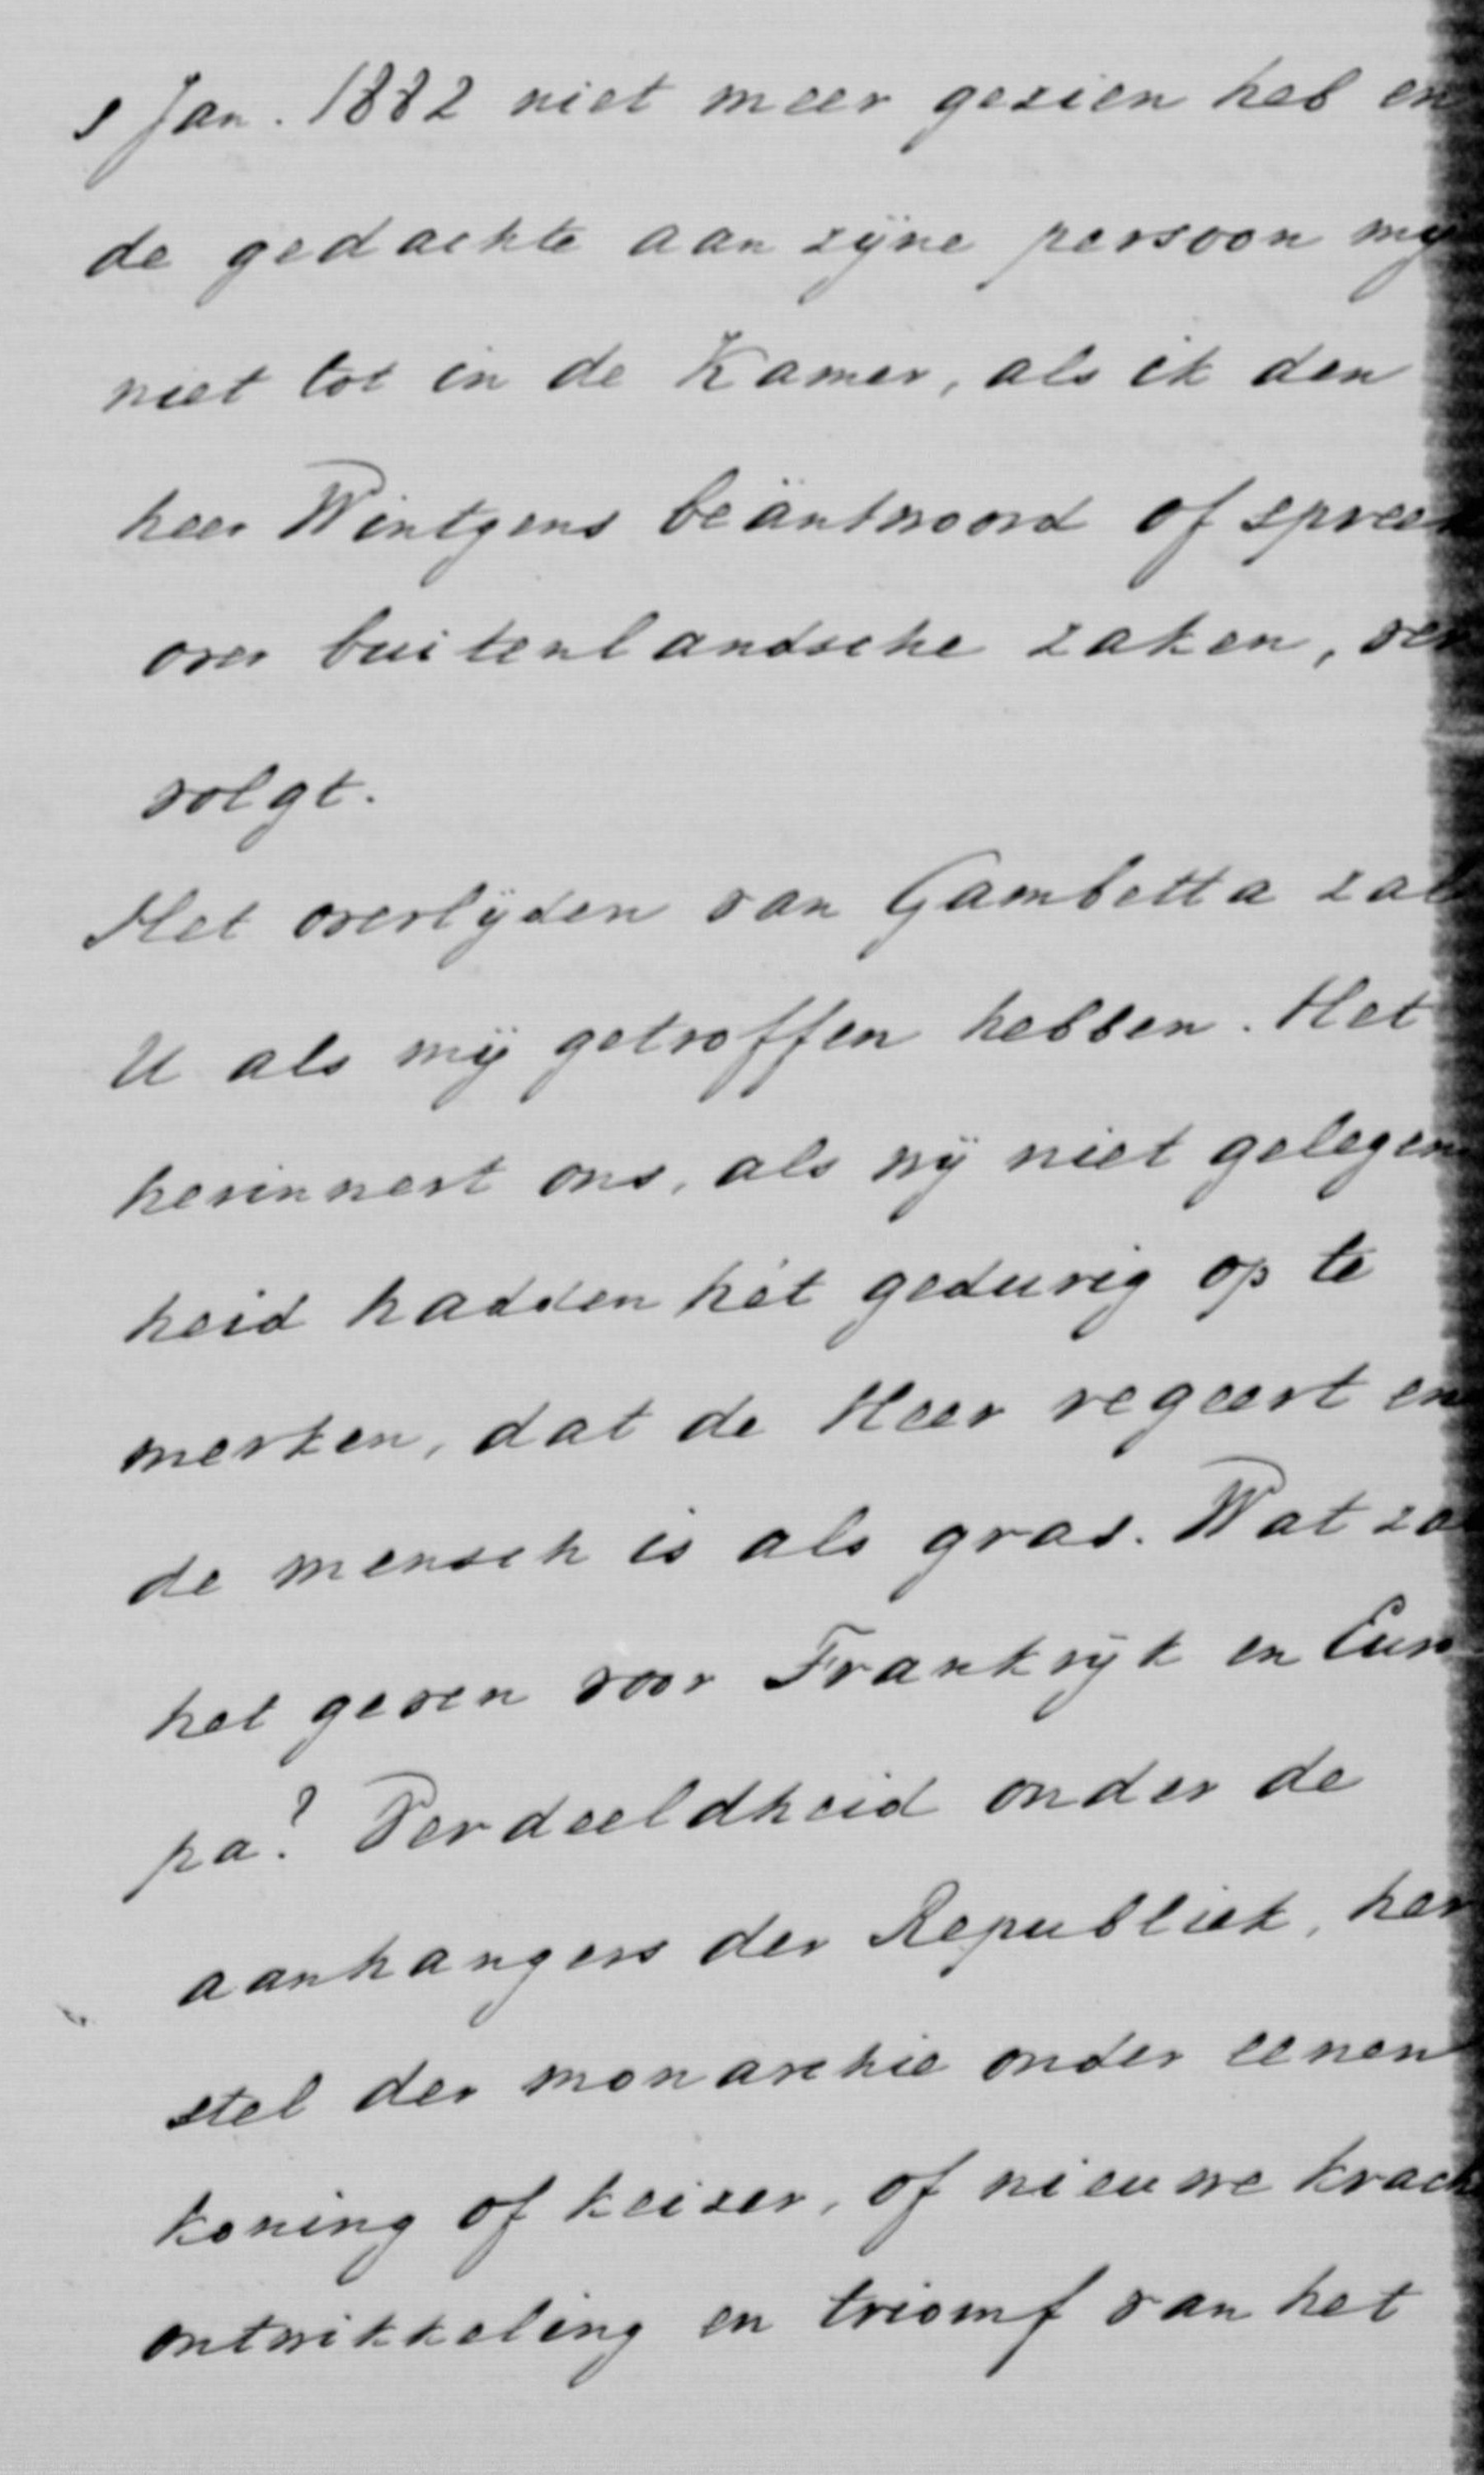 s Jan. 1882 niet meer gezien heb en
de gedachte aan zijne persoon mij
niet tot in de Kamer, als ik den
heer Wintgens beäntwoord of spreek
over buitenlandsche zaken, ver
volgt.
Het overlijden van Gambetta zal
U als mij getroffen hebben. Het
herinnert ons, als wij niet gelegen
heid hadden hét gedurig op te
merken, dat de Heer regeert en
de mensch is als gras. Wat zal
het geven voor Frankrijk en Euro
pa? Verdeeldheid onder de
aanhangers der Republiek, her
stel der monarchie onder eenen
koning of keizer, of nieuwe krach
ontwikkeling en triomf van het